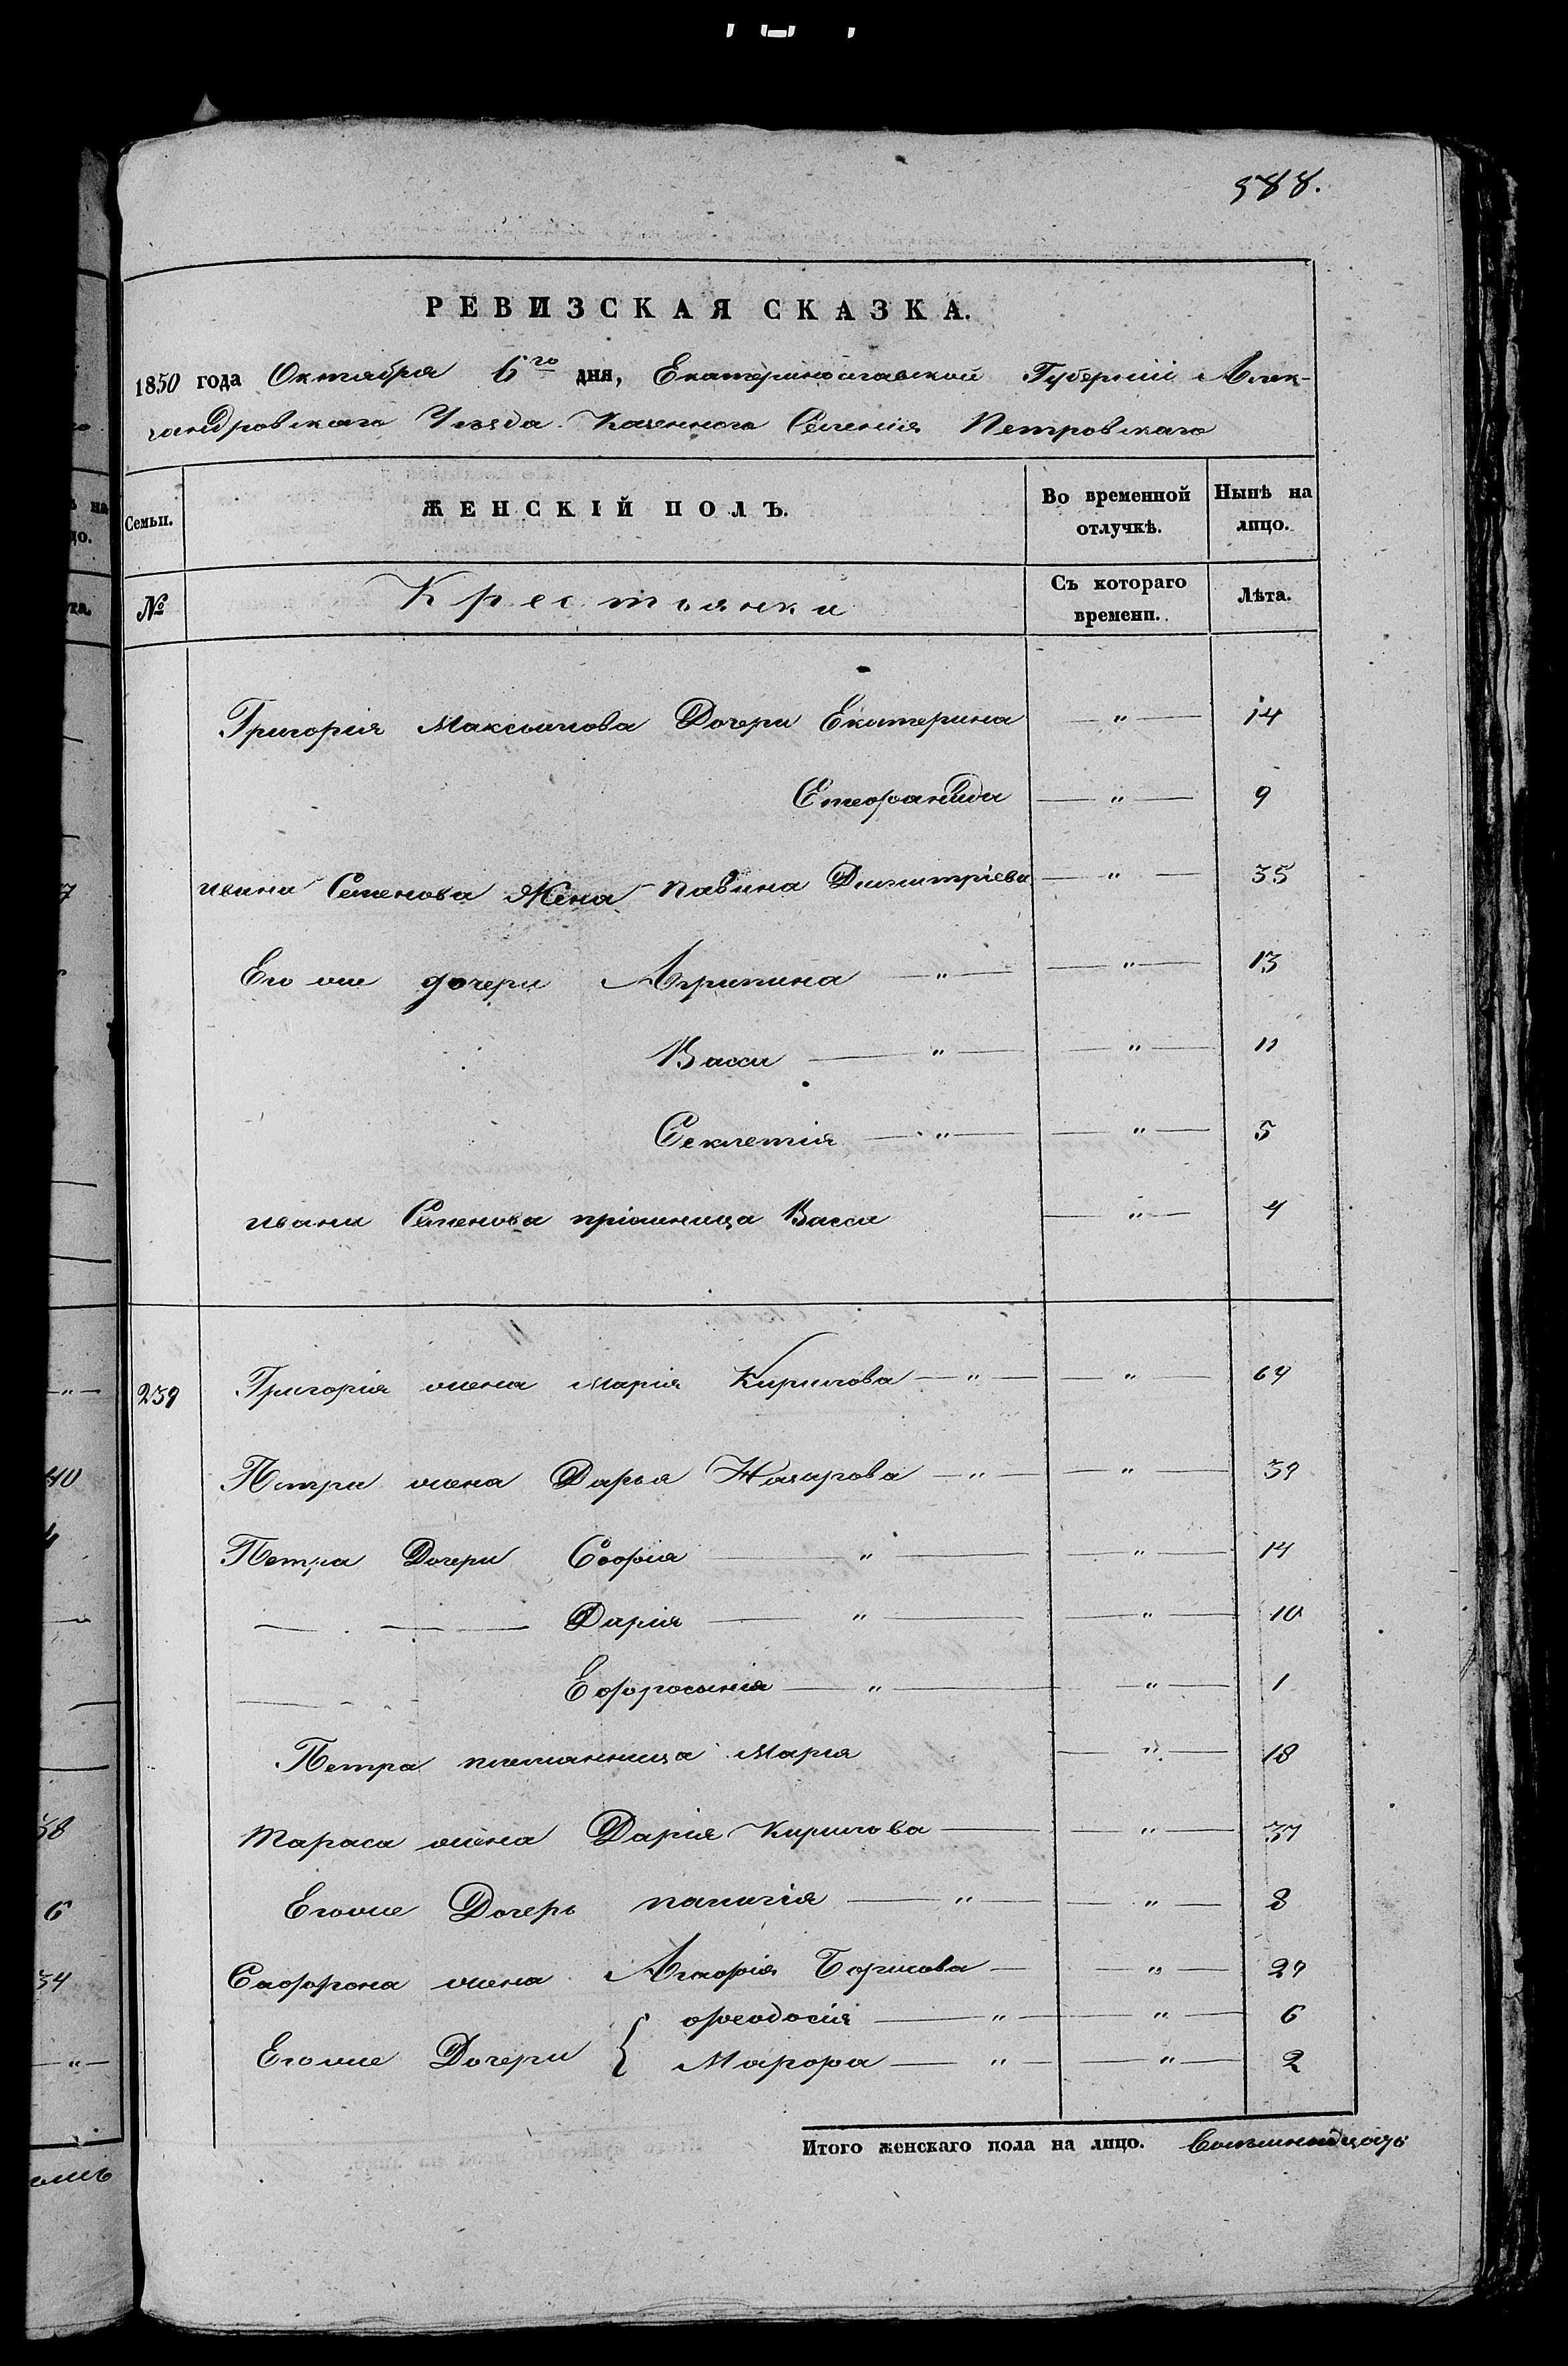 988.
РЕВИЗСКАЯ СКАЗКА.
1850 года Октября 6го дня, Екатеринославской Губерніи Алек-
сандровскаго Уезда Казеннаго Селенія Петровскаго
Семьи. ЖЕНСКІЙ ПОЛЪ. Во временной отлучкѣ. Нынѣ на лицо.
№ Крестьянки Съ котораго времени. Лѣта.
Григорія Максимова Дочери Екатерина — " — 14
Стефанида — " — 9
Ивана Семенова Жена Павина Димитріева — " — 35
Его же дочери Агрипина — " — — " — 13
Васса — " — — " — 11
Секлетія — " — — " — 5
Ивана Семенова пріемница Васса — " — 4
239 Григорія жена Марія Кирилова — " — — " — 69
Петра жена Дарья Назарова — " — — " — 39
Петра Дочери Софія — " — — " — 14
— — — Дарія — " — — " — 10
— — — Ефросинія — " — — " — 1
Петра племянница Марія — " — 18
Тараса жена Дарія Кирилова — — " — 37
Егоже Дочерь Палагія — " — — " — 8
Сафрона жена Борисова — — " — 27
Егоже Дочери { Феодосія — " — — " — 6
Марфа — " — — " — 2
Итого женскаго пола на лицо. Восемнадцать